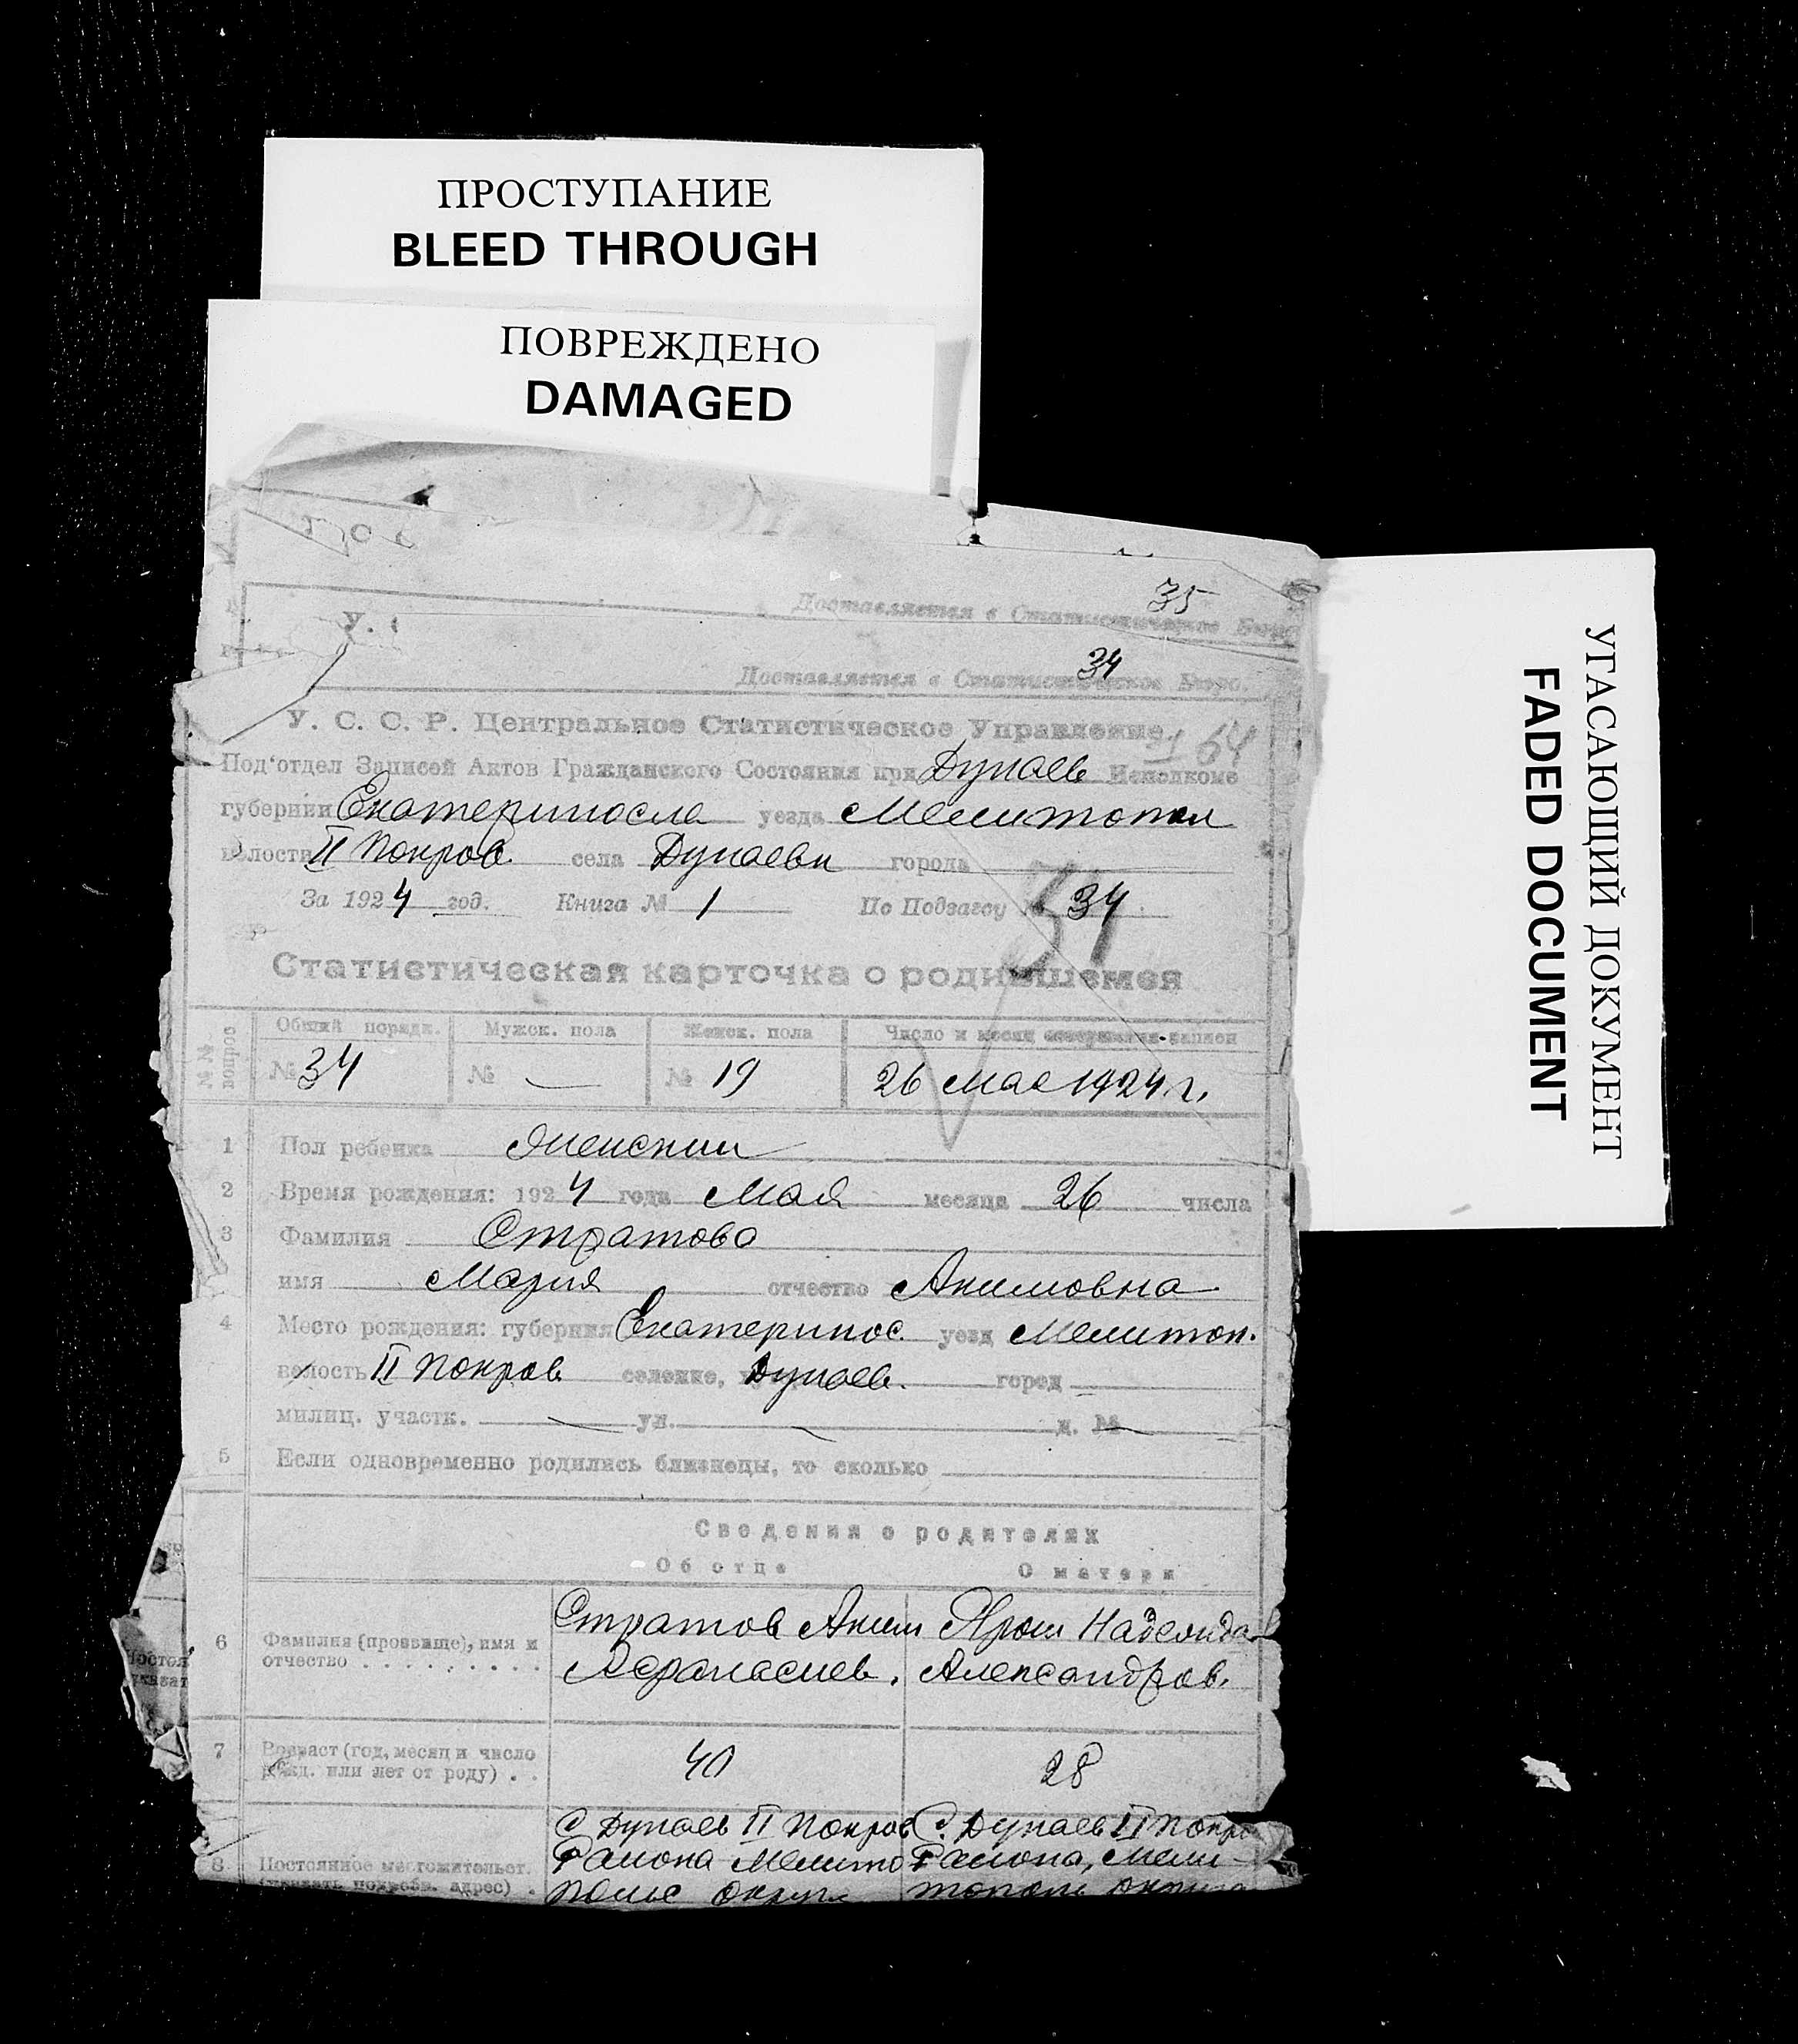 ПРОСТУПАНИЕ
BLEED THROUGH
ПОВРЕЖДЕНО
DAMAGED
УГАСАЮЩИЙ ДОКУМЕНТ
FADED DOCUMENT
35
Доставляется в Статистическое Бюро
У.
34
Доставляется в Статистическое Бюро.
У. С. С. Р. Центральное Статистическое Управление.
64
Под'отдел Записей Актов Гражданского Состояния при Дунаев Исполкоме
губернии Екатериносла уезда Мелитопол
волости II Покров. села Дунаевки города
За 1924 год. Книга № 1 По Подзагсу № 34
34
Статистическая карточка о родившемся
№№ вопрос Общий порядк. Мужск. пола Женск. пола Число и месяц совершения записи
№ 34 № — № 19 26 мае 1924 г.
1 Пол ребенка Женский
2 Время рождения: 1924 года Мая месяца 26 числа
3 Фамилия Стратово
имя Мария отчество Акимовна
4 Место рождения: губерния Екатеринос. уезд Мелитоп.
волость II Покров селение, Дунаев. город
милиц. участк. — ул. — д. № —
5 Если одновременно родились близнецы, то сколько
Сведения о родителях
Об отце О матери
6 Фамилия (прозвище), имя и отчество . . . . . . . . . .
Стратов Аким Ярош Надежда
Афанасиев. Александров.
7 Возраст (год, месяц и число рожд. или лет от роду) . .
40 28
С Дунаев II Покров С. Дунаев II Покро
8 Постоянное местожительст. Района Мелито Района, Мели-
(указать подробн. адрес) . польс округ топол округа